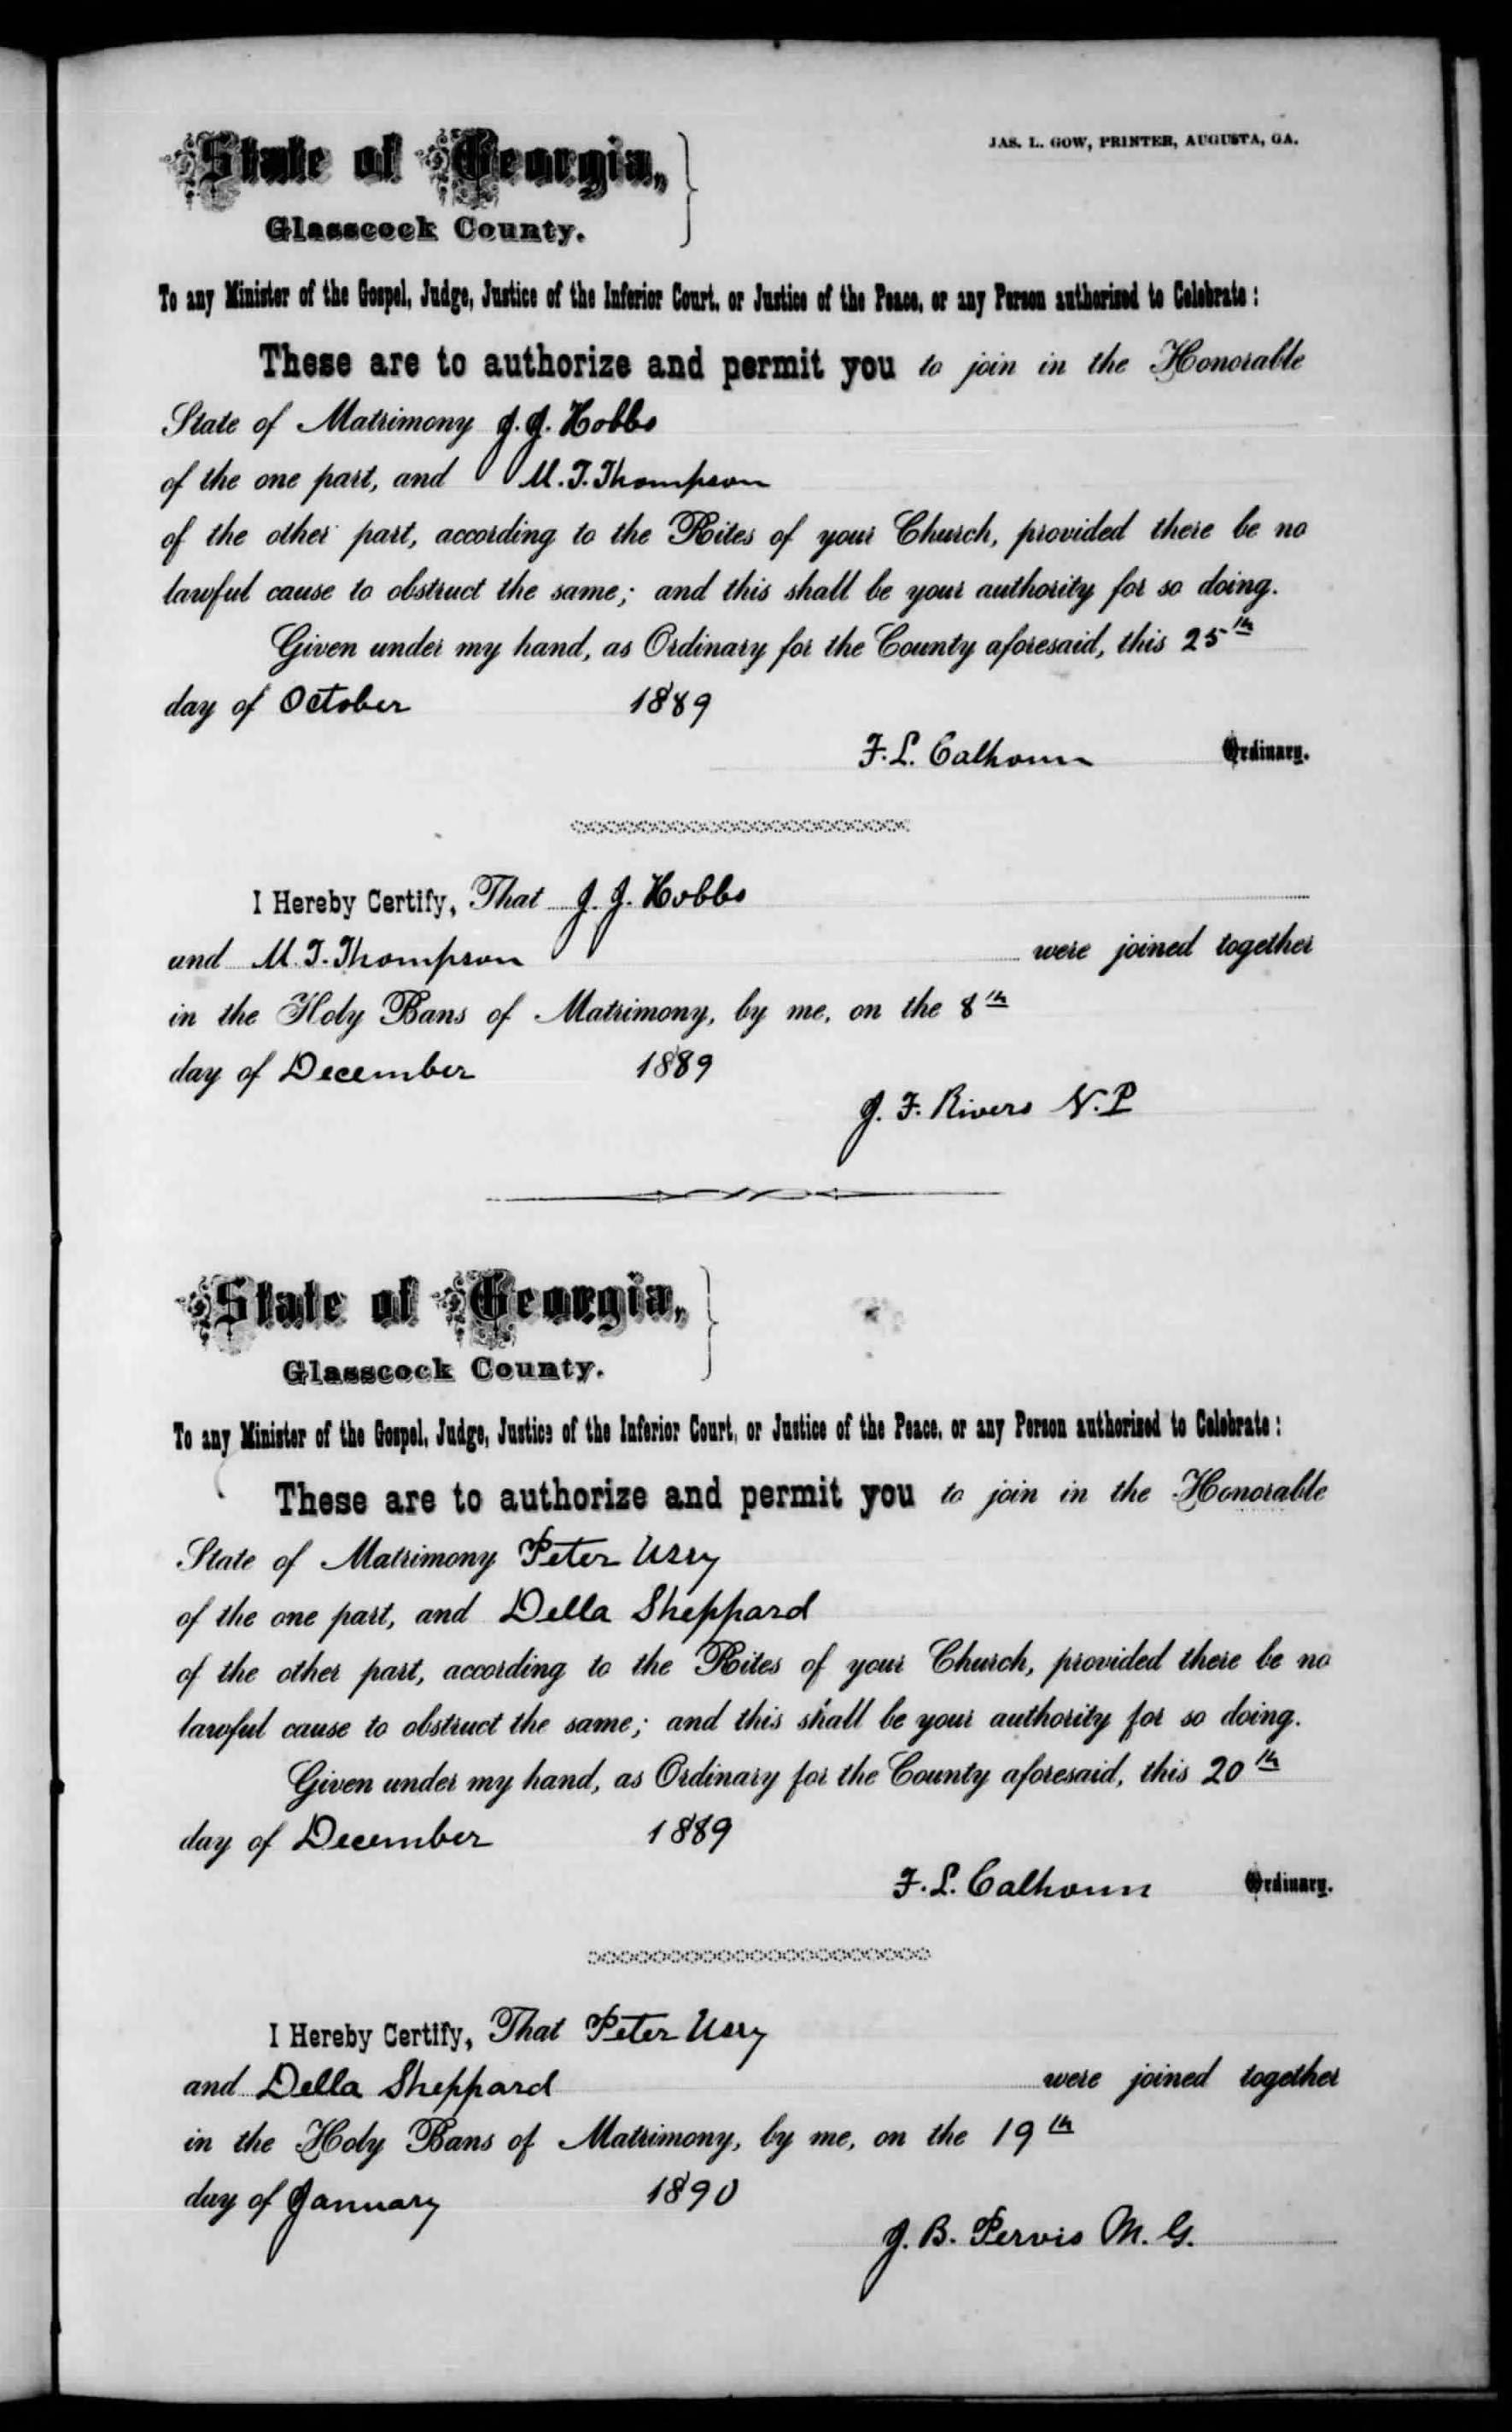 JAS. L. GOW, PRINTER, AUGUSTA, GA.
State of Georgia,
Glasscock County.
To any Minister of the Gospel, Judge, Justice of the Inferior Court, or Justice of the Peace, or any Person authorized to Celebrate:
These are to authorize and permit you to join in the Honorable
State of Matrimony J. J. Hobbs
of the one part, and M. T. Thompson
of the other part, according to the Rites of your Church, provided there be no
lawful cause to obstruct the same; and this shall be your authority for so doing.
Given under my hand, as Ordinary for the County aforesaid, this 25th
day of October 1889
F. L. Calhoun Ordinary.
I Hereby Certify, That J. J. Hobbs
and M. T. Thompson were joined together
in the Holy Bans of Matrimony, by me, on the 8th
day of December 1889
J. F. Rivers N. P
State of Georgia,
Glasscock County.
To any Minister of the Gospel, Judge, Justice of the Inferior Court, or Justice of the Peace, or any Person authorized to Celebrate:
These are to authorize and permit you to join in the Honorable
State of Matrimony Peter Usry
of the one part, and Della Sheppard
of the other part, according to the Rites of your Church, provided there be no
lawful cause to obstruct the same; and this shall be your authority for so doing.
Given under my hand, as Ordinary for the County aforesaid, this 20th
day of December 1889
F. L. Calhoun Ordinary.
I Hereby Certify, That Peter Usry
and Della Sheppard were joined together
in the Holy Bans of Matrimony, by me, on the 19th
day of January 1890
J. B. Pervis M. G.